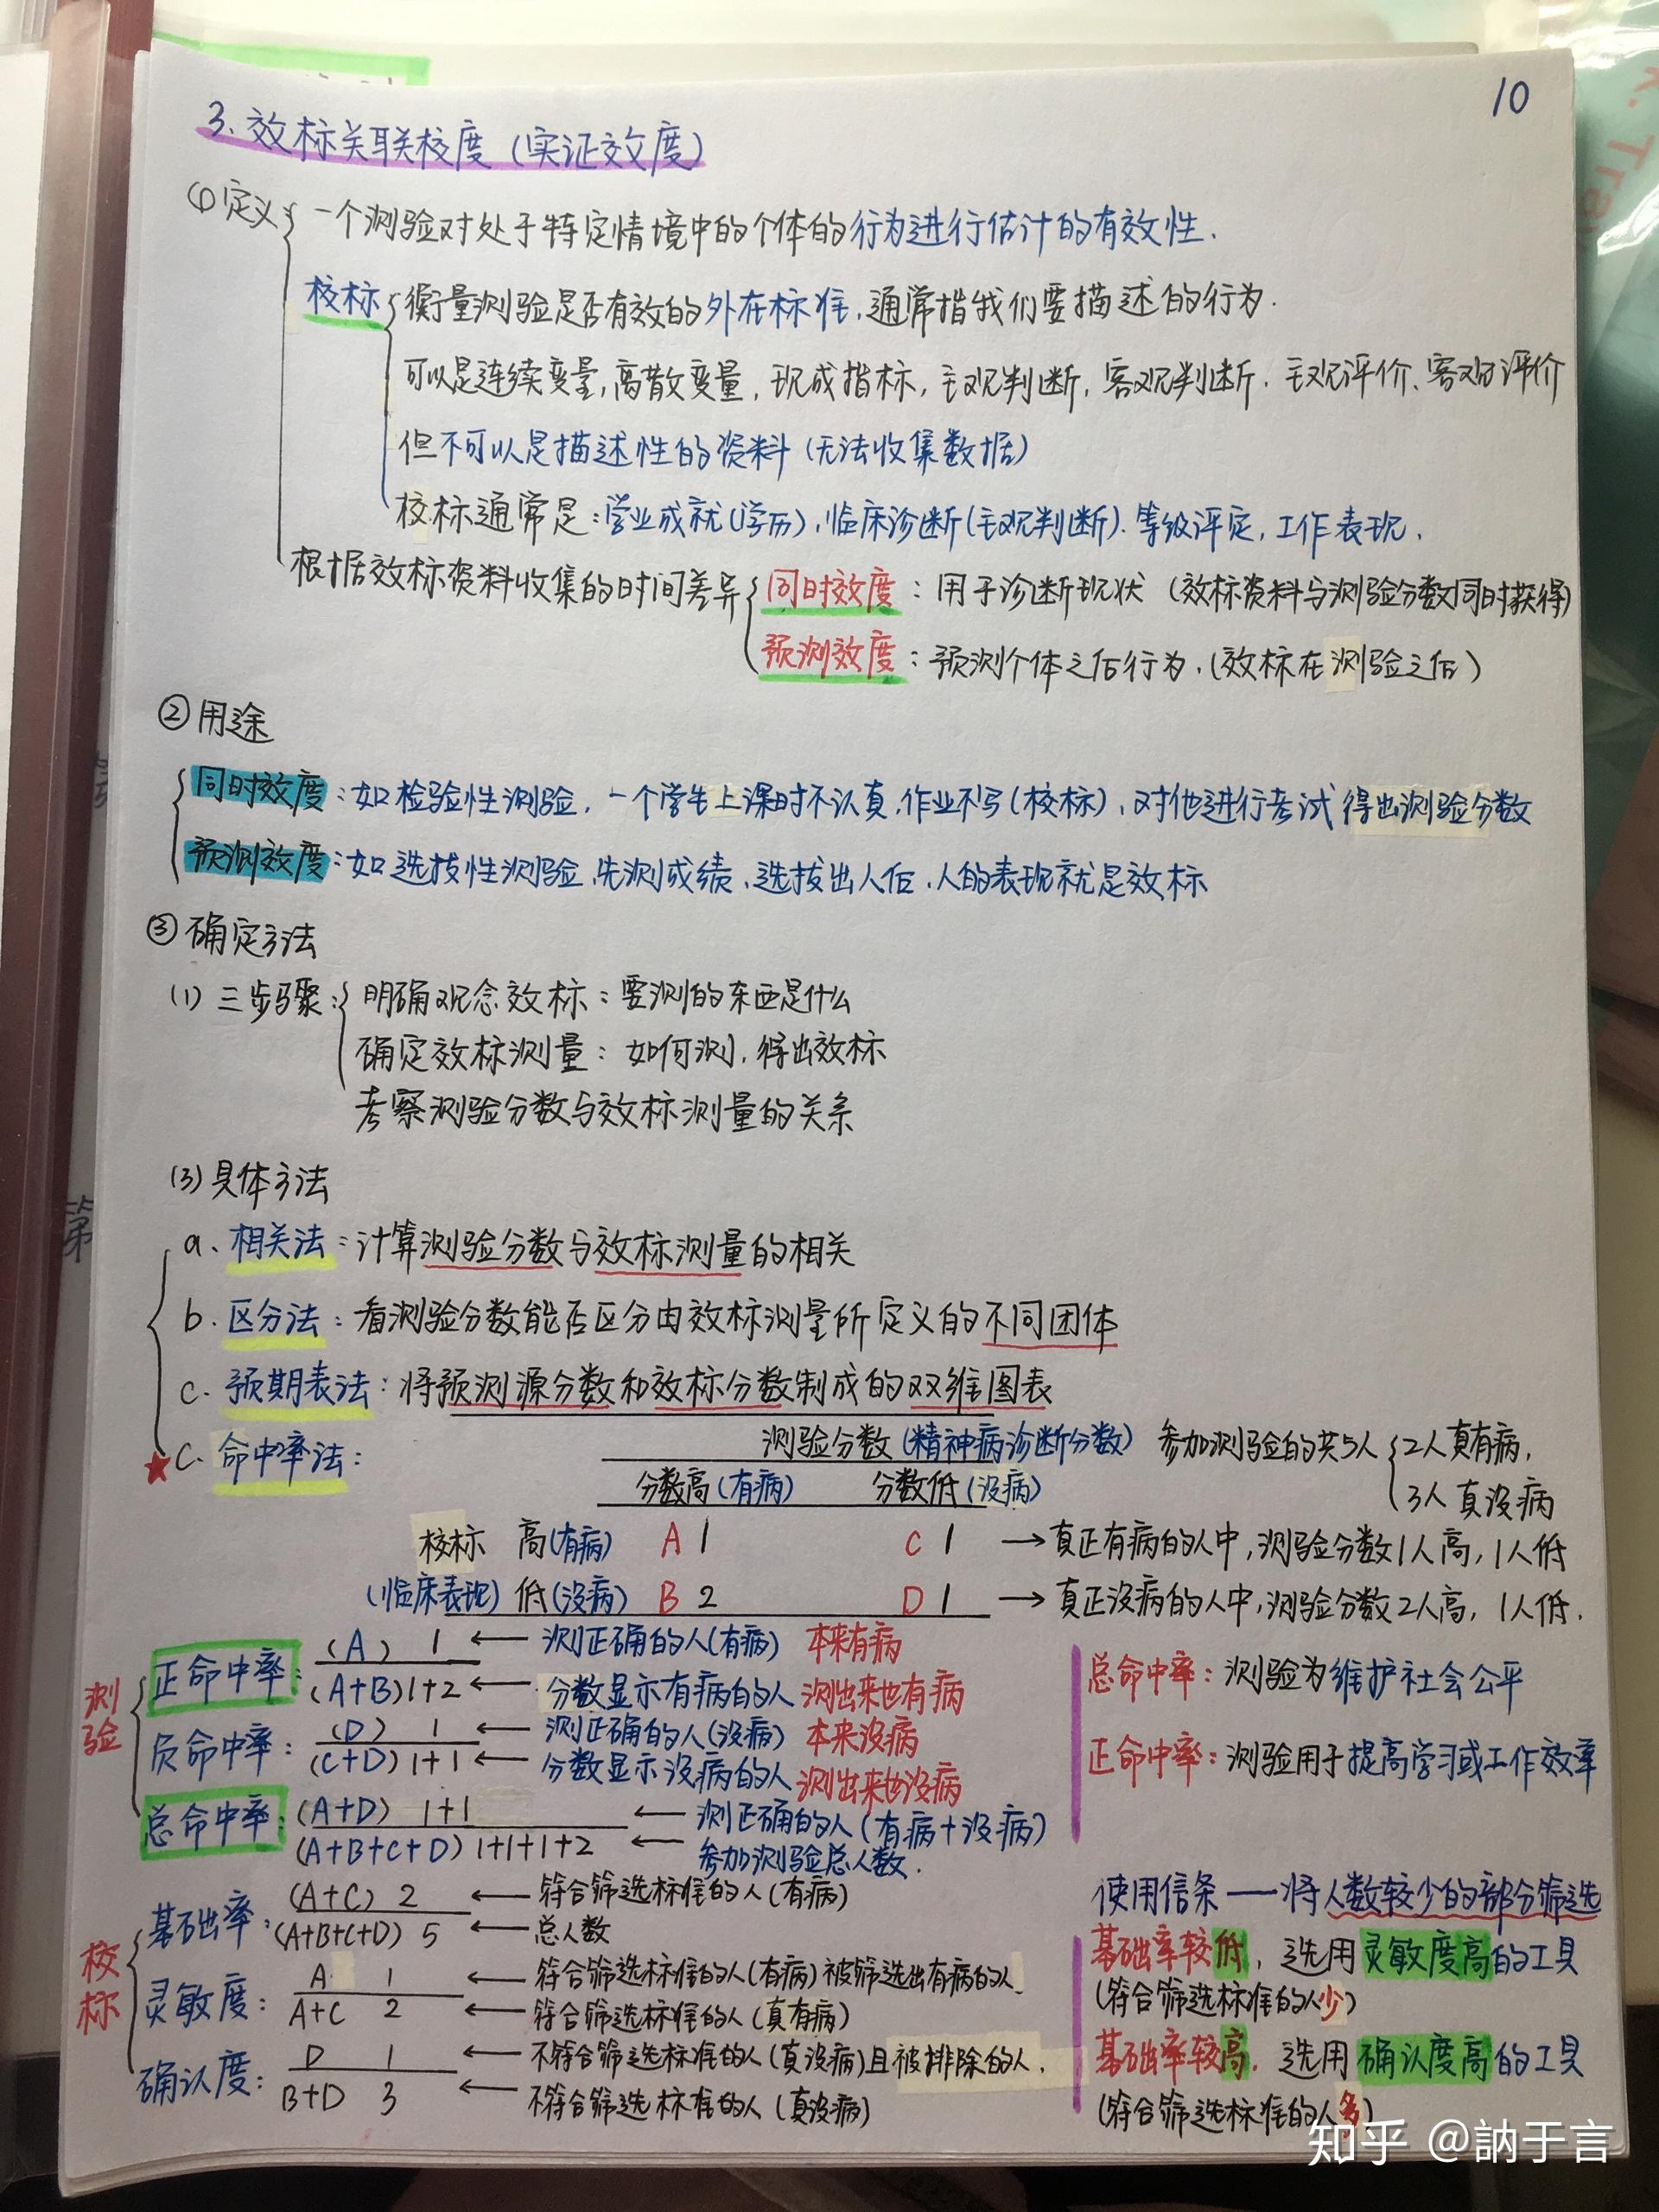 10
3、效标关联校度(实证效度)
①定义 一个测验对处于特定情境中的个体的行为进行估计的有效性.
校标 衡量测验是否有效的外在标准,通常指我们要描述的行为.
可以是连续变量,离散变量,现成指标,主观判断,客观判断.主观评价、客观评价
但不可以是描述性的资料(无法收集数据)
校标通常是:学业成就(学历),临床诊断(主观判断).等级评定,工作表现.
根据效标资料收集的时间差异 同时效度:用于诊断现状(效标资料与测验分数同时获得)
预测效度:预测个体之后行为.(效标在测验之后)
②用途
同时效度:如检验性测验,一个学生上课时不认真,作业不写(校标),对他进行考试得出测验分数
预测效度:如选拔性测验,先测成绩、选拔出人后,人的表现就是效标
③确定方法
(1)三步骤: 明确观念效标:要测的东西是什么
确定效标测量:如何测,得出效标
考察测验分数与效标测量的关系
(3)具体方法
a、相关法:计算测验分数与效标测量的相关
b.区分法:看测验分数能否区分由效标测量所定义的不同团体
c.预期表法:将预测源分数和效标分数制成的双维图表
★C.命中率法: 测验分数(精神病诊断分数) 参加测验的共5人 2人真有病,
分数高(有病) 分数低(没病) 3人真没病
校标 高(有病) A 1 C 1 →真正有病的人中,测验分数1人高,1人低
(临床表现) 低(没病) B 2 D 1 →真正没病的人中,测验分数2人高,1人低.
测验
正命中率: (A) 1 ← 测正确的人(有病) 本来有病
(A+B) 1+2 ← 分数显示有病的人 测出来也有病
负命中率: (D) 1 ← 测正确的人(没病) 本来没病
(C+D) 1+1 ← 分数显示没病的人 测出来也没病
总命中率: (A+D) 1+1 ← 测正确的人(有病+没病)
(A+B+C+D) 1+1+1+2 ← 参加测验总人数.
总命中率:测验为维护社会公平
正命中率:测验用于提高学习或工作效率
校标
基础率: (A+C) 2 ← 符合筛选标准的人(有病)
(A+B+C+D) 5 ← 总人数
灵敏度: A 1 ← 符合筛选标准的人(有病)被筛选出有病的人
A+C 2 ← 符合筛选标准的人(真有病)
确认度: D 1 ← 不符合筛选标准的人(真没病)且被排除的人.
B+D 3 ← 不符合筛选标准的人(真没病)
使用信条——将人数较少的部分筛选
基础率较低,选用灵敏度高的工具
(符合筛选标准的人少)
基础率较高,选用确认度高的工具
(符合筛选标准的人多)
知乎 @訥于言
第